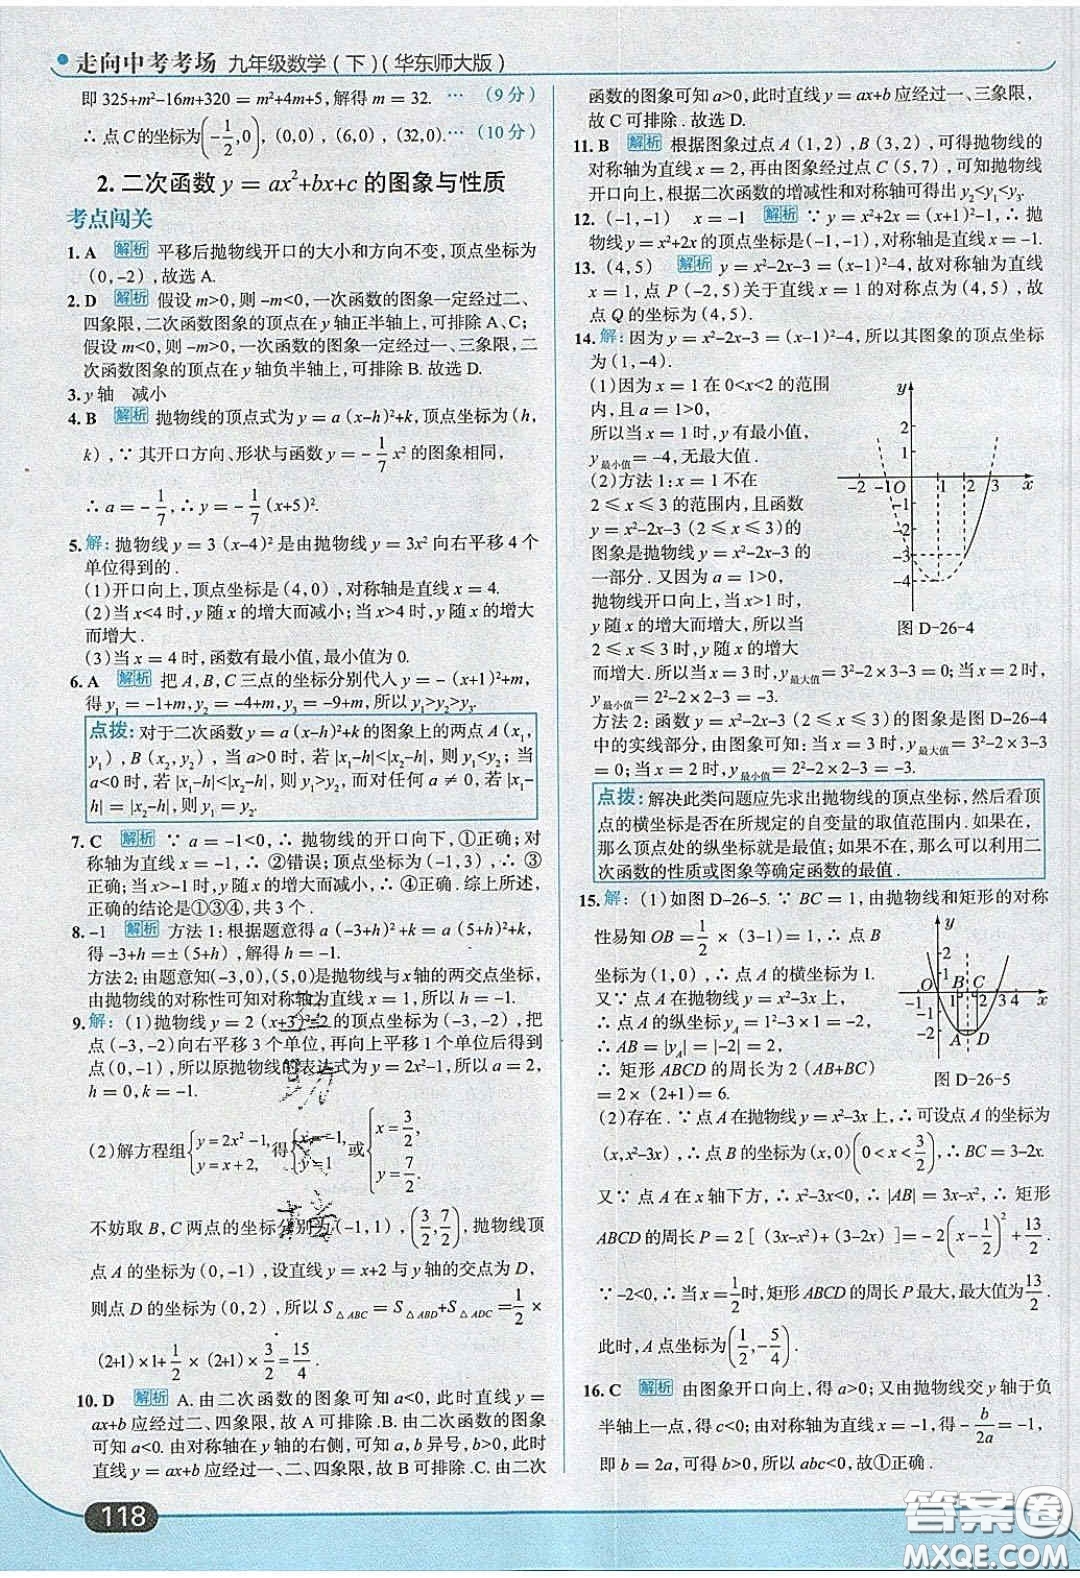 走向中考考场 九年级数学(下)(华东师大版)
即 325+m²-16m+320 = m²+4m+5, 解得 m = 32. … (9 分)
∴ 点 C 的坐标为(-1/2,0), (0,0), (6,0), (32,0). … (10 分)
2. 二次函数 y = ax²+bx+c 的图象与性质
考点闯关
1. A 解析 平移后抛物线开口的大小和方向不变, 顶点坐标为
(0,-2), 故选 A.
2. D 解析 假设 m>0, 则 -m<0, 二次函数的图象一定经过二、
四象限, 二次函数图象的顶点在 y 轴正半轴上, 可排除 A、C;
假设 m<0, 则 -m>0, 一次函数的图象一定经过一、三象限, 二
次函数图象的顶点在 y 轴负半轴上, 可排除 B. 故选 D.
3. y 轴 减小
4. B 解析 抛物线的顶点式为 y = a (x-h)²+k, 顶点坐标为 (h,
k), ∵ 其开口方向、形状与函数 y = -1/7 x² 的图象相同,
∴ a = -1/7, ∴ y = -1/7 (x+5)².
5. 解: 抛物线 y = 3 (x-4)² 是由抛物线 y = 3x² 向右平移 4 个
单位得到的.
(1) 开口向上, 顶点坐标是 (4,0), 对称轴是直线 x = 4.
(2) 当 x<4 时, y 随 x 的增大而减小; 当 x>4 时, y 随 x 的增大
而增大.
(3) 当 x = 4 时, 函数有最小值, 最小值为 0.
6. A 解析 把 A, B, C 三点的坐标分别代入 y = - (x+1)²+m,
得 y₁ = -1+m, y₂ = -4+m, y₃ = -9+m, 所以 y₁>y₂>y₃.
点拨: 对于二次函数 y = a (x-h)²+k 的图象上的两点 A (x₁,
y₁), B (x₂, y₂), 当 a>0 时, 若 |x₁-h|<|x₂-h|, 则 y₁<y₂; 当
a<0 时, 若 |x₁-h|<|x₂-h|, 则 y₁>y₂, 而对任何 a ≠ 0, 若 |x₁-
h| = |x₂-h|, 则 y₁ = y₂.
7. C 解析 ∵ a = -1<0, ∴ 抛物线的开口向下, ①正确; 对
称轴为直线 x = -1, ∴ ②错误; 顶点坐标为 (-1,3), ∴ ③
正确; 当 x>-1 时, y 随 x 的增大而减小, ∴ ④正确. 综上所述,
正确的结论是①③④, 共 3 个.
8. -1 解析 方法 1: 根据题意得 a (-3+h)²+k = a (5+h)²+k,
得 -3+h = ± (5+h), 解得 h = -1.
方法 2: 由题意知 (-3,0), (5,0) 是抛物线与 x 轴的两交点坐标,
由抛物线的对称性可知对称轴为直线 x = 1, 所以 h = -1.
9. 解: (1) 抛物线 y = 2 (x+3)²-2 的顶点坐标为 (-3,-2), 把
点 (-3,-2) 向右平移 3 个单位, 再向上平移 1 个单位后得到
点 (0,-1), 所以原抛物线的表达式为 y = 2x²-1, 所以 a = 2,
h = 0, k = -1.
(2) 解方程组 {y = 2x²-1, y = x+2, 得 {x = -1, y = 1 或 {x = 3/2, y = 7/2.
不妨取 B, C 两点的坐标分别为 (-1,1), (3/2, 7/2), 抛物线顶
点 A 的坐标为 (0,-1), 设直线 y = x+2 与 y 轴的交点为 D,
则点 D 的坐标为 (0,2), 所以 S△ABC = S△ABD+S△ADC = 1/2 ×
(2+1) × 1+ 1/2 × (2+1) × 3/2 = 15/4.
10. D 解析 A. 由二次函数的图象可知 a<0, 此时直线 y =
ax+b 应经过二、四象限, 故 A 可排除. B. 由二次函数的图象
可知 a<0. 由对称轴在 y 轴的右侧, 可知 a, b 异号, b>0, 此时
直线 y = ax+b 应经过一、二、四象限, 故 B 可排除. C. 由二次
函数的图象可知 a>0, 此时直线 y = ax+b 应经过一、三象限,
故 C 可排除. 故选 D.
11. B 解析 根据图象过点 A (1,2), B (3,2), 可得抛物线的
对称轴为直线 x = 2, 再由图象经过点 C (5,7), 可知抛物线
开口向上, 根据二次函数的增减性和对称轴可得出 y₂<y₁<y₃.
12. (-1,-1) x = -1 解析 ∵ y = x²+2x = (x+1)²-1, ∴ 抛
物线 y = x²+2x 的顶点坐标是 (-1,-1), 对称轴为直线 x = -1.
13. (4,5) 解析 y = x²-2x-3 = (x-1)²-4, 故对称轴为直线
x = 1, 点 P (-2,5) 关于直线 x = 1 的对称点为 (4,5), 故
点 Q 的坐标为 (4,5).
14. 解: 因为 y = x²-2x-3 = (x-1)²-4, 所以其图象的顶点坐标
为 (1,-4).
(1) 因为 x = 1 在 0<x<2 的范围
内, 且 a = 1>0,
所以当 x = 1 时, y 有最小值,
y最小值 = -4, 无最大值.
(2) 方法 1: x = 1 不在
2 ⩽ x ⩽ 3 的范围内, 且函数
y = x²-2x-3 (2 ⩽ x ⩽ 3) 的
图象是抛物线 y = x²-2x-3 的
一部分. 又因为 a = 1>0,
抛物线开口向上, 当 x>1 时,
y 随 x 的增大而增大, 所以当
2 ⩽ x ⩽ 3 时, y 随 x 的增大
而增大, 所以当 x = 3 时, y最大值 = 3²-2 × 3-3 = 0; 当 x = 2
时, y最小值 = 2²-2×2-3 = -3.
y 2 1 -2 -1 O 1 2 3 x -1 -2 -3 -4
图 D-26-4
方法 2: 函数 y = x²-2x-3 (2 ⩽ x ⩽ 3) 的图象是图 D-26-4
中的实线部分, 由图象可知: 当 x = 3 时, y最大值 = 3²-2×3-3 =
0; 当 x = 2 时, y最小值 = 2²-2×2-3 = -3.
点拨: 解决此类问题应先求出抛物线的顶点坐标, 然后看顶
点的横坐标是否在所规定的自变量的取值范围内. 如果在,
那么顶点处的纵坐标就是最值; 如果不在, 那么可以利用二
次函数的性质或图象等确定函数的最值.
15. 解: (1) 如图 D-26-5. ∵ BC = 1, 由抛物线和矩形的对称
性易知 OB = 1/2 × (3-1) = 1. ∴ 点 B
坐标为 (1,0), ∴ 点 A 的横坐标为 1.
又∵ 点 A 在抛物线 y = x²-3x 上,
∴ 点 A 的纵坐标 yA = 1²-3×1 = -2,
∴ AB = |yA| = |-2| = 2.
∴ 矩形 ABCD 的周长为 2 (AB+BC)
= 2 × (2+1) = 6.
y B C -1 0 1 2 3 4 x -1 -2 A D
图 D-26-5
(2) 存在. ∵ 点 A 在抛物线 y = x²-3x 上, ∴ 可设点 A 的坐标为
(x, x²-3x), ∴ 点 B 的坐标为 (x,0) (0 < x < 3/2), ∴ BC = 3-2x.
又∵ 点 A 在 x 轴下方, ∴ x²-3x<0, ∴ |AB| = 3x-x², ∴ 矩形
ABCD 的周长 P = 2 [(3x-x²)+ (3-2x)] = -2(x-1/2)²+13/2.
∵ -2<0, ∴ 当 x = 1/2 时, 矩形 ABCD 的周长 P 最大, 最大值为 13/2.
此时, A 点坐标为 (1/2, -5/4).
16. C 解析 由图象开口向上, 得 a>0; 又由抛物线交 y 轴于负
半轴上一点, 得 c<0; 由对称轴为直线 x = -1, 得 -b/2a = -1,
即 b = 2a, 可得 b>0, 所以 abc<0, 故①正确.
118
答案圈
MXQE.COM